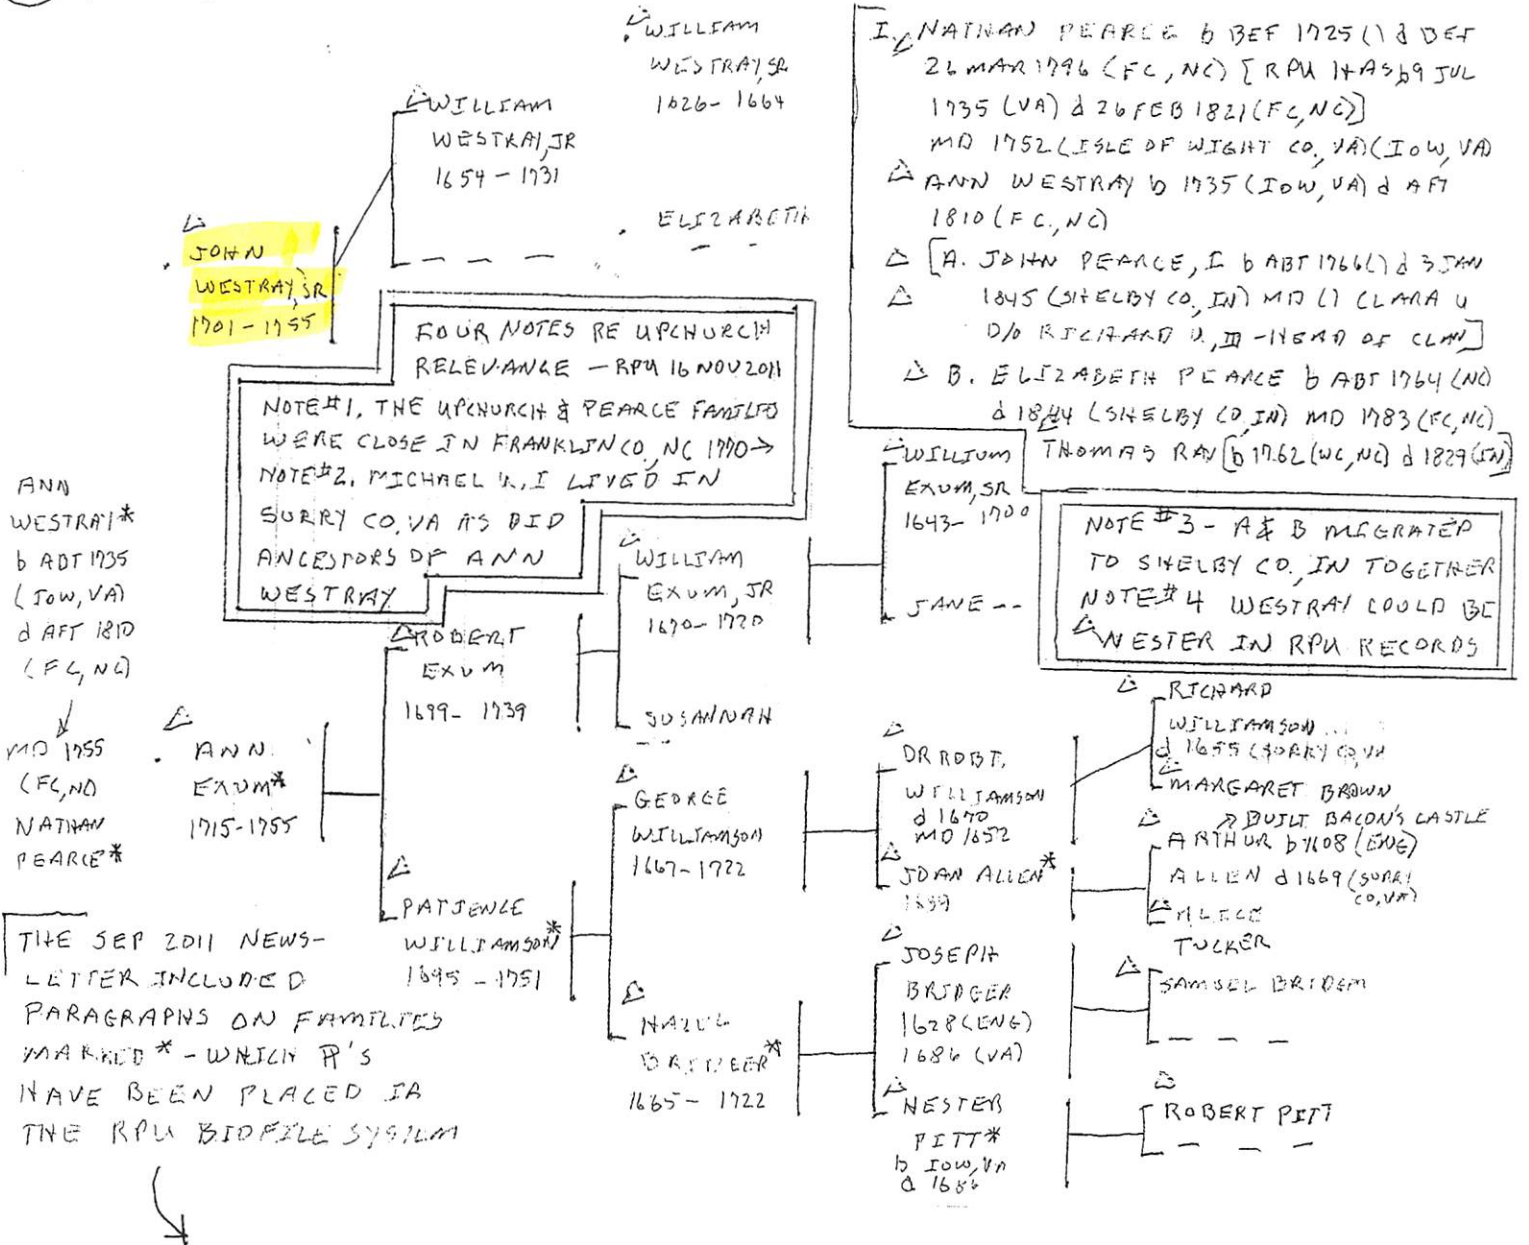 WILLIAM
WESTRAY, SR
1626 - 1664
WILLIAM
WESTRAY, JR
1654 - 1731
ELIZABETH
JOHN
WESTRAY, SR
1701 - 1755
I. NATHAN PEARCE b BEF 1725 () d BEF
26 MAR 1796 (FC, NC) [RPU HAS b 9 JUL
1735 (VA) d 26 FEB 1821 (FC, NC)]
MD 1752 (ISLE OF WIGHT CO., VA) (IOW, VA)
ANN WESTRAY b 1735 (IOW, VA) d AFT
1810 (FC., NC)
[A. JOHN PEARCE, I b ABT 1766 () d 3 JAN
1845 (SHELBY CO, IN) MD () CLARA U
D/O RICHARD U, III - HEAD OF CLAN]
B. ELIZABETH PEARCE b ABT 1764 (NC)
d 1844 (SHELBY CO, IN) MD 1783 (FC, NC)
THOMAS RAY [b 1762 (WC, NC) d 1829 (IN)]
FOUR NOTES RE UPCHURCH
RELEVANCE - RPU 16 NOV 2011
NOTE #1. THE UPCHURCH & PEARCE FAMILES
WERE CLOSE IN FRANKLIN CO., NC 1770 →
NOTE #2. MICHAEL U, I LIVED IN
SURRY CO, VA AS DID
ANCESTORS OF ANN
WESTRAY
NOTE #3 - A & B MIGRATED
TO SHELBY CO., IN TOGETHER
NOTE #4 WESTRAY COULD BE
WESTER IN RPU RECORDS
ANN
WESTRAY*
b ABT 1735
(IOW, VA)
d AFT 1810
(FC, NC)
MD 1755
(FC, NC)
NATHAN
PEARCE*
ANN
EXUM*
1715-1755
ROBERT
EXUM
1699 - 1739
PATIENCE
WILLIAMSON*
1695 - 1751
WILLIAM
EXUM, JR
1670 - 1720
SUSANNAH
--
WILLIUM
EXUM, SR
1643 - 1700
JANE --
GEORGE
WILLIAMSON
1667 - 1722
BRIDGER*
1665 - 1722
DR ROBT.
WILLIAMSON
d 1670
MD 1652
JOAN ALLEN*
JOSEPH
BRIDGER
1628 (ENG)
1686 (VA)
HESTER
PITT*
b IOW, VA
RICHARD
WILLIAMSON
d 1655 (SURRY CO, VA
MARGARET BROWN
BUILT BACON'S CASTLE
ARTHUR b 1608 (ENG)
ALLEN d 1669 (SURRY
CO, VA)
ALICE
TUCKER
SAMUEL
ROBERT PITT
THE SEP 2011 NEWS-
LETTER INCLUDED
PARAGRAPHS ON FAMILIES
MARKED * - WHICH ¶'S
HAVE BEEN PLACED IN
THE RPU BIOFILE SYSTEM